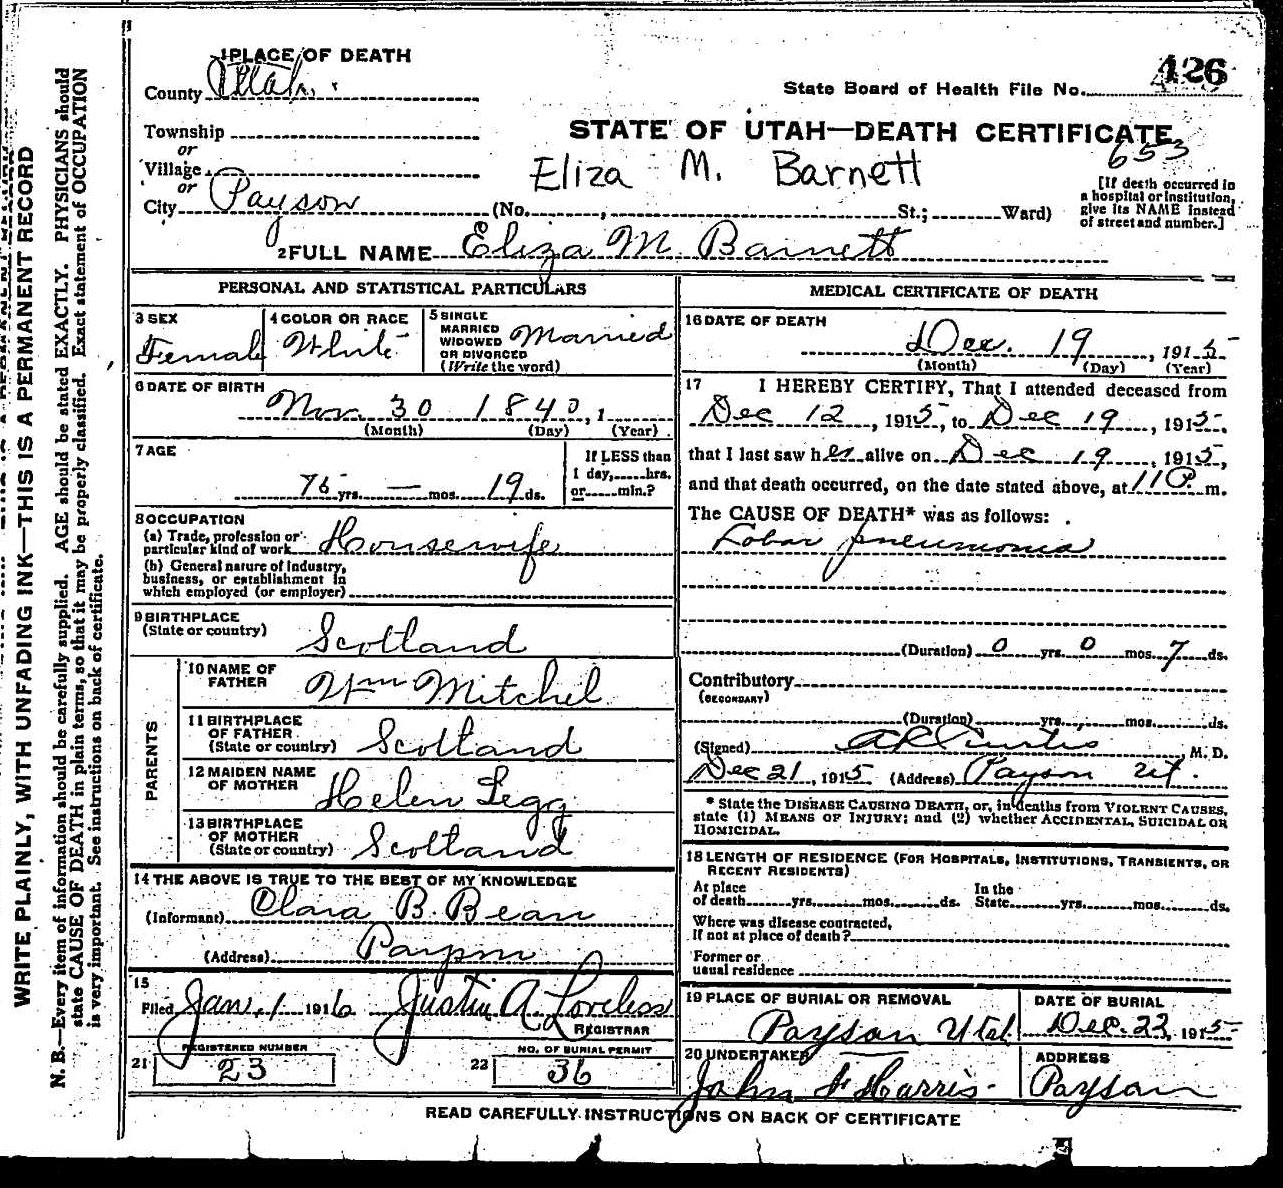 1 PLACE OF DEATH
County Utah
State Board of Health File No. 426
Township
or
STATE OF UTAH—DEATH CERTIFICATE
653
Village
or
Eliza M. Barnett
City Payson (No. , St.; Ward)
[If death occurred in
a hospital or institution,
give its NAME instead
of street and number.]
2 FULL NAME Eliza M Barnett
PERSONAL AND STATISTICAL PARTICULARS
3 SEX
Female
4 COLOR OR RACE
White
5 SINGLE
MARRIED
WIDOWED
OR DIVORCED
(Write the word)
Married
6 DATE OF BIRTH
Nov 30 1840, 1
(Month) (Day) (Year)
7 AGE
75 yrs. — mos. 19 ds.
If LESS than
1 day, hrs.
or min.?
8 OCCUPATION
(a) Trade, profession or
particular kind of work Housewife
(b) General nature of industry,
business, or establishment in
which employed (or employer)
9 BIRTHPLACE
(State or country) Scotland
PARENTS
10 NAME OF
FATHER Wm Mitchel
11 BIRTHPLACE
OF FATHER
(State or country) Scotland
12 MAIDEN NAME
OF MOTHER Helen Legg
13 BIRTHPLACE
OF MOTHER
(State or country) Scotland
14 THE ABOVE IS TRUE TO THE BEST OF MY KNOWLEDGE
(Informant) Clara B. Bean
(Address) Payson
15
Filed Jan. 1 1916 Justin A. Loveless
REGISTRAR
REGISTERED NUMBER
21 23
NO. OF BURIAL PERMIT
22 36
MEDICAL CERTIFICATE OF DEATH
16 DATE OF DEATH
Dec. 19, 1915
(Month) (Day) (Year)
17 I HEREBY CERTIFY, That I attended deceased from
Dec 12, 1915, to Dec 19, 1915,
that I last saw her alive on Dec 19, 1915,
and that death occurred, on the date stated above, at 11 P. m.
The CAUSE OF DEATH* was as follows:
Lobar pneumonia
(Duration) 0 yrs. 0 mos. 7 ds.
Contributory
(SECONDARY)
(Duration) yrs. mos. ds.
(Signed) A L Curtis M. D.
Dec 21, 1915 (Address) Payson Ut.
* State the DISEASE CAUSING DEATH, or, in deaths from VIOLENT CAUSES,
state (1) MEANS OF INJURY; and (2) whether ACCIDENTAL, SUICIDAL OR
HOMICIDAL.
18 LENGTH OF RESIDENCE (FOR HOSPITALS, INSTITUTIONS, TRANSIENTS, OR
RECENT RESIDENTS)
At place
of death yrs. mos. ds.
In the
State yrs. mos. ds.
Where was disease contracted,
If not at place of death?
Former or
usual residence
19 PLACE OF BURIAL OR REMOVAL
Payson Utah
DATE OF BURIAL
Dec. 22, 1915
20 UNDERTAKER
John F Harris
ADDRESS
Payson
READ CAREFULLY INSTRUCTIONS ON BACK OF CERTIFICATE
WRITE PLAINLY, WITH UNFADING INK—THIS IS A PERMANENT RECORD
N. B.—Every item of information should be carefully supplied. AGE should be stated EXACTLY. PHYSICIANS should
state CAUSE OF DEATH in plain terms, so that it may be properly classified. Exact statement of OCCUPATION
is very important. See instructions on back of certificate.